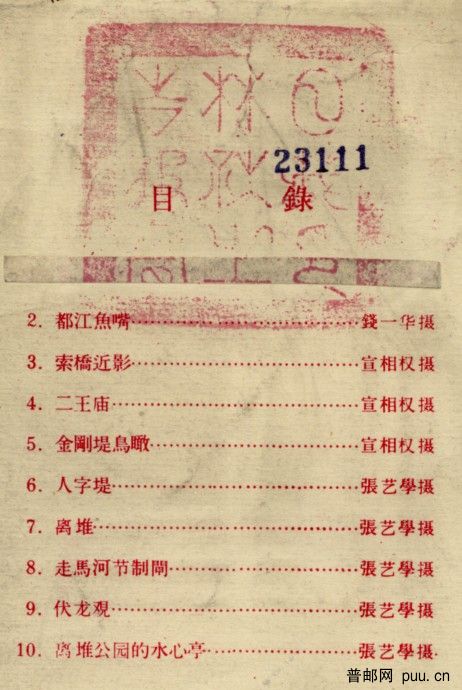 23111
目 錄
2. 都江魚嘴……………………錢一华摄
3. 索橋近影……………………宣相权摄
4. 二王庙……………………宣相权摄
5. 金剛堤鳥瞰……………………宣相权摄
6. 人字堤……………………張艺學摄
7. 离堆……………………張艺學摄
8. 走馬河节制閘……………………張艺學摄
9. 伏龙观……………………張艺學摄
10. 离堆公园的水心亭……………………張艺學摄
普邮网 puu.cn